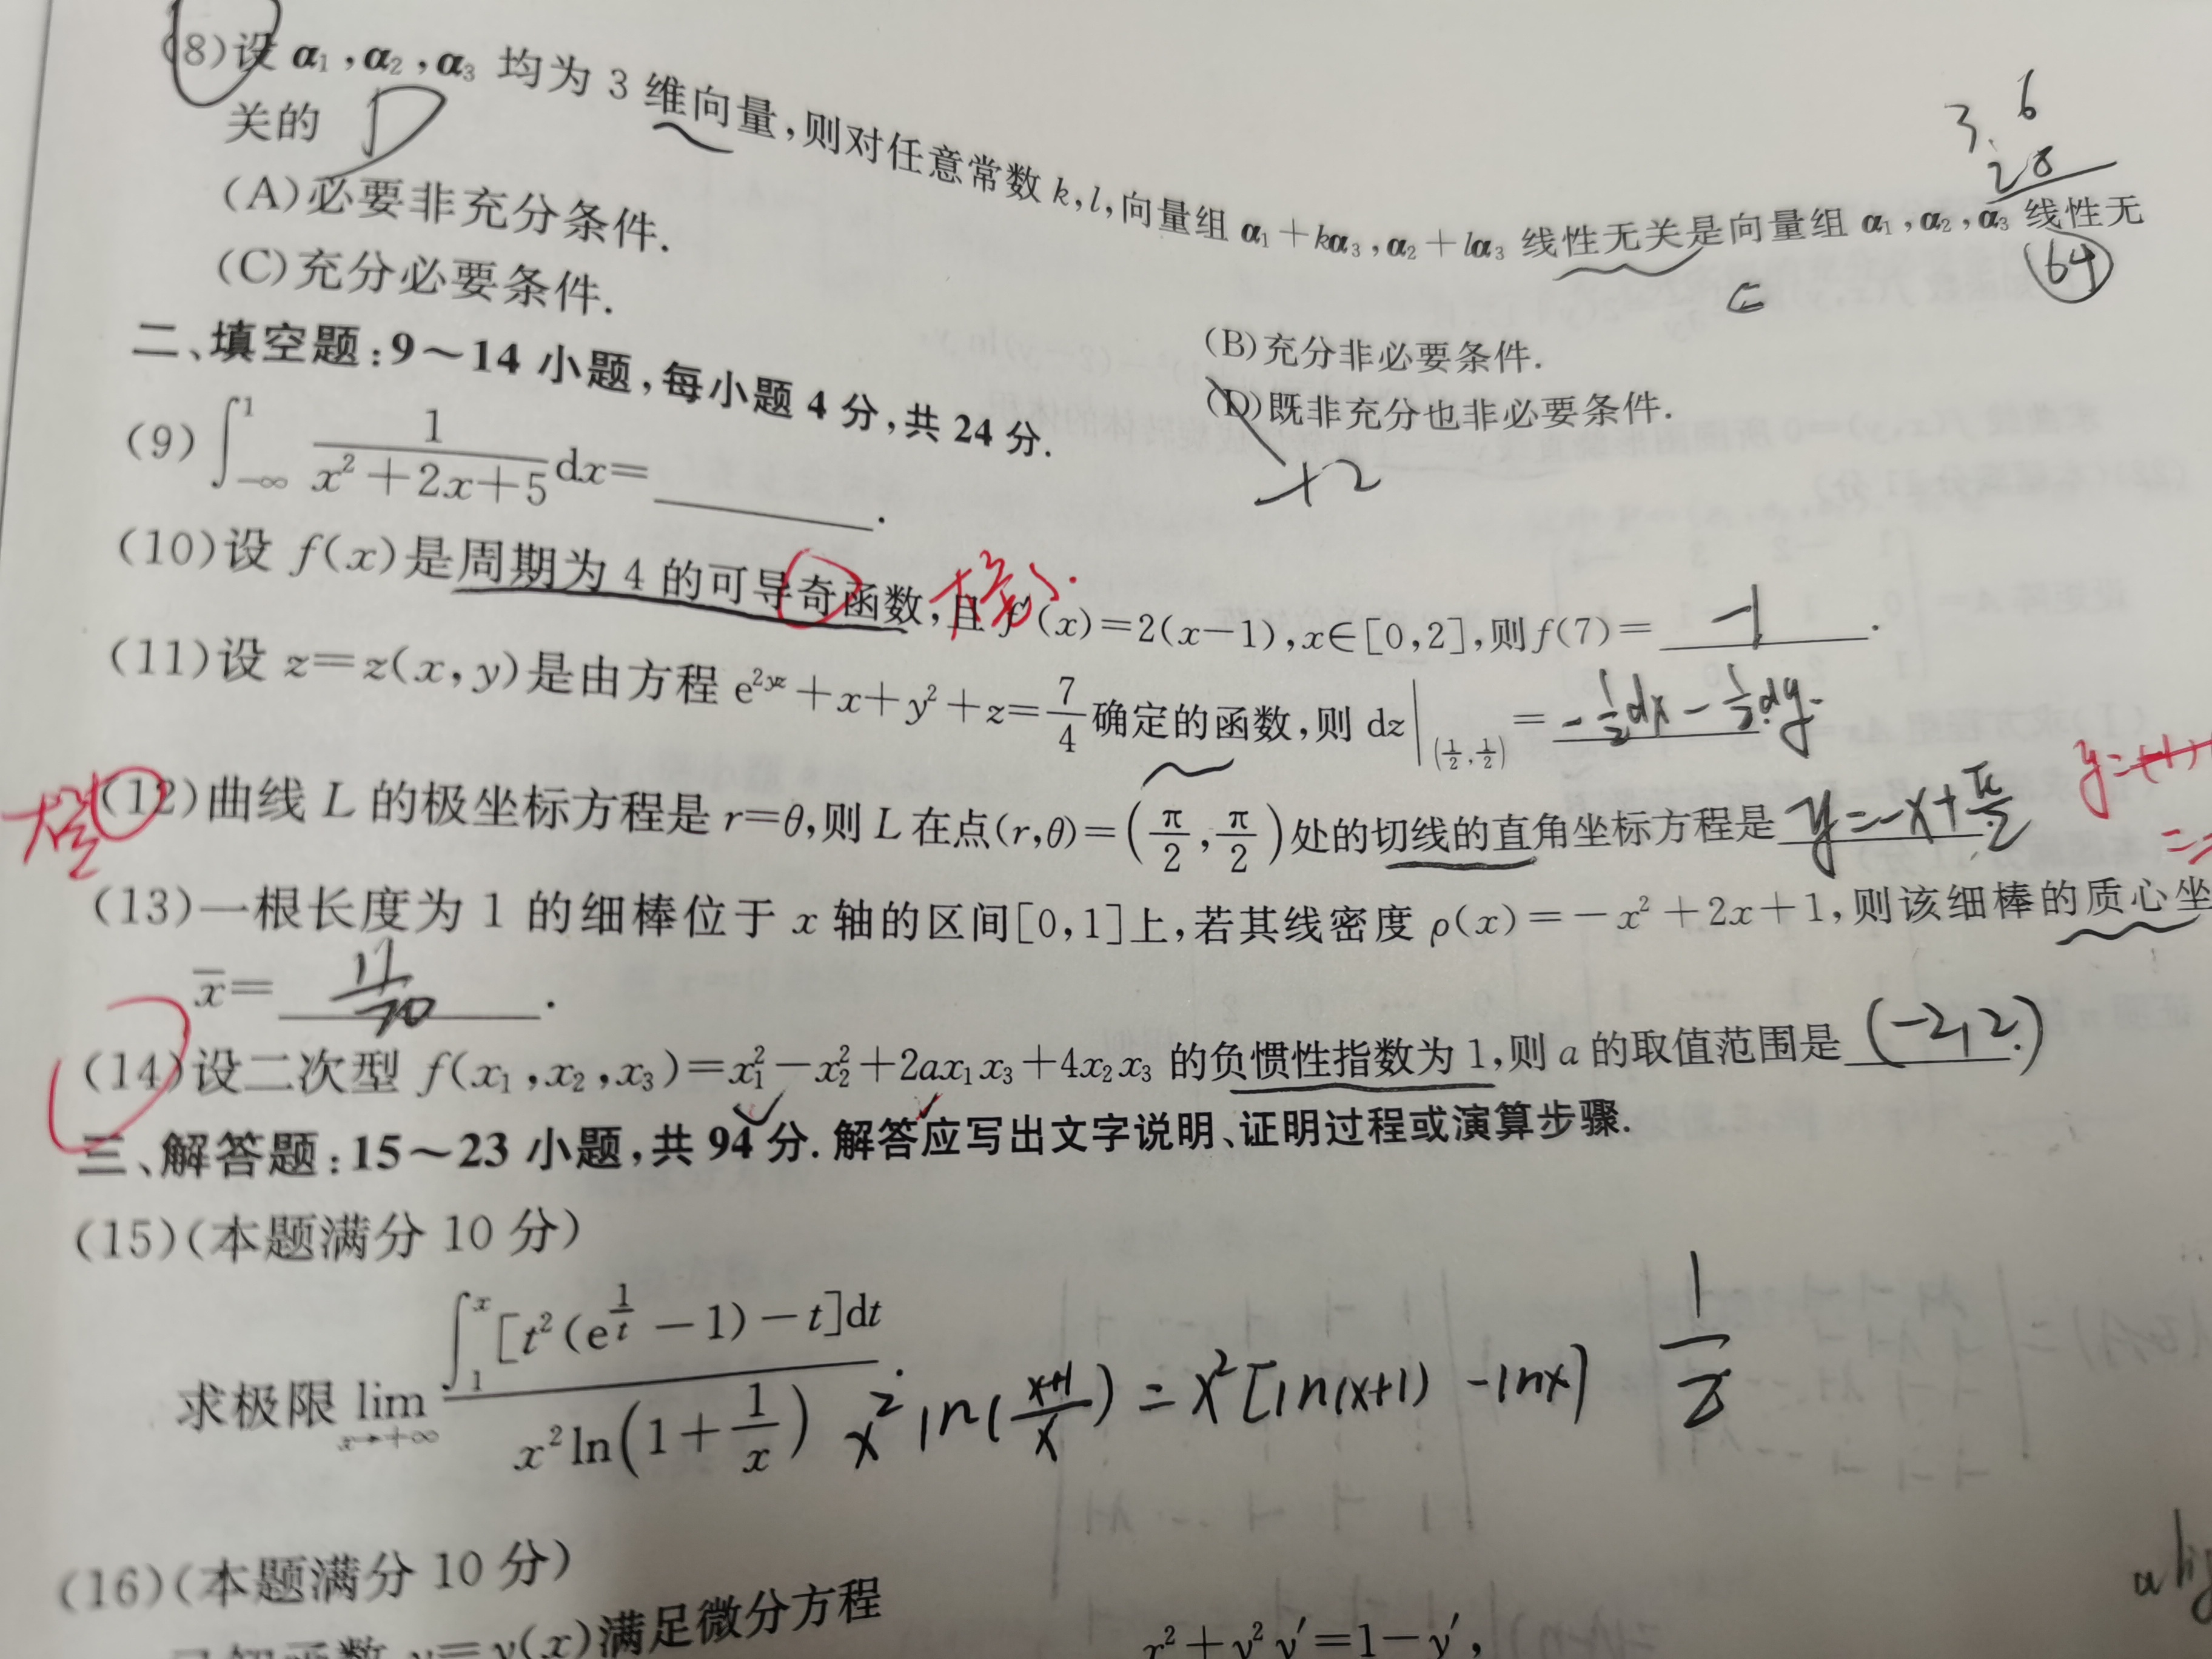 (8)设 α₁,α₂,α₃ 均为 3 维向量,则对任意常数 k,l,向量组 α₁+kα₃,α₂+lα₃ 线性无关是向量组 α₁,α₂,α₃ 线性无
关的 D
3. 6
28
64
C
(A)必要非充分条件.
(B)充分非必要条件.
(C)充分必要条件.
(D)既非充分也非必要条件.
+2
二、填空题:9~14 小题,每小题 4 分,共 24 分.
(9) ∫_{-∞}^{1} 1/(x²+2x+5) dx=______.
(10)设 f(x)是周期为 4 的可导奇函数,且 f′(x)=2(x-1),x∈[0,2],则 f(7)= -1 .
(11)设 z=z(x,y)是由方程 e^{2yz}+x+y²+z=7/4 确定的函数,则 dz|_{(1/2,1/2)} = -1/2dx-1/2dy.
(12)曲线 L 的极坐标方程是 r=θ,则 L 在点(r,θ)=(π/2,π/2)处的切线的直角坐标方程是 y=-x+π/2
(13)一根长度为 1 的细棒位于 x 轴的区间[0,1]上,若其线密度 ρ(x)=-x²+2x+1,则该细棒的质心坐
x̄= 11/20 .
(14)设二次型 f(x₁,x₂,x₃)=x₁²-x₂²+2ax₁x₃+4x₂x₃ 的负惯性指数为 1,则 a 的取值范围是 (-2,2)
三、解答题:15~23 小题,共 94 分.解答应写出文字说明、证明过程或演算步骤.
(15)(本题满分 10 分)
求极限 lim_{x→+∞} ∫_1^x [t²(e^{1/t}-1)-t]dt / x²ln(1+1/x) . x² ln((x+1)/x) = x²[ln(x+1) -lnx] 1/2
(16)(本题满分 10 分)
已知函数 y=y(x)满足微分方程
x²+y²y′=1-y′,